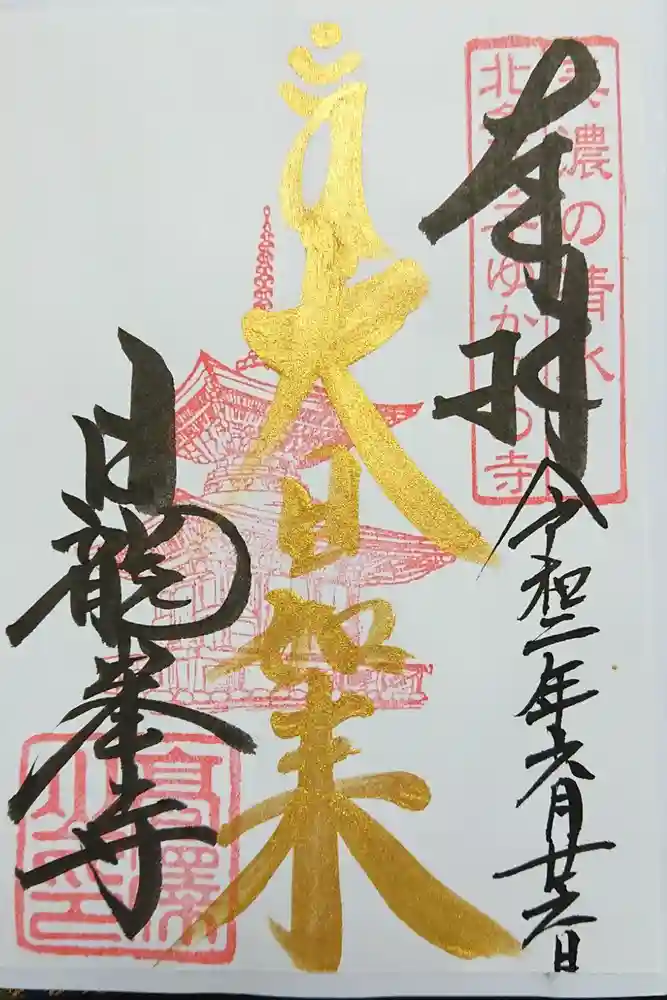 奉拝
美濃の清水
北条政子ゆかりの寺
令和二年六月廿六日
大日如来
日龍峯寺
高澤